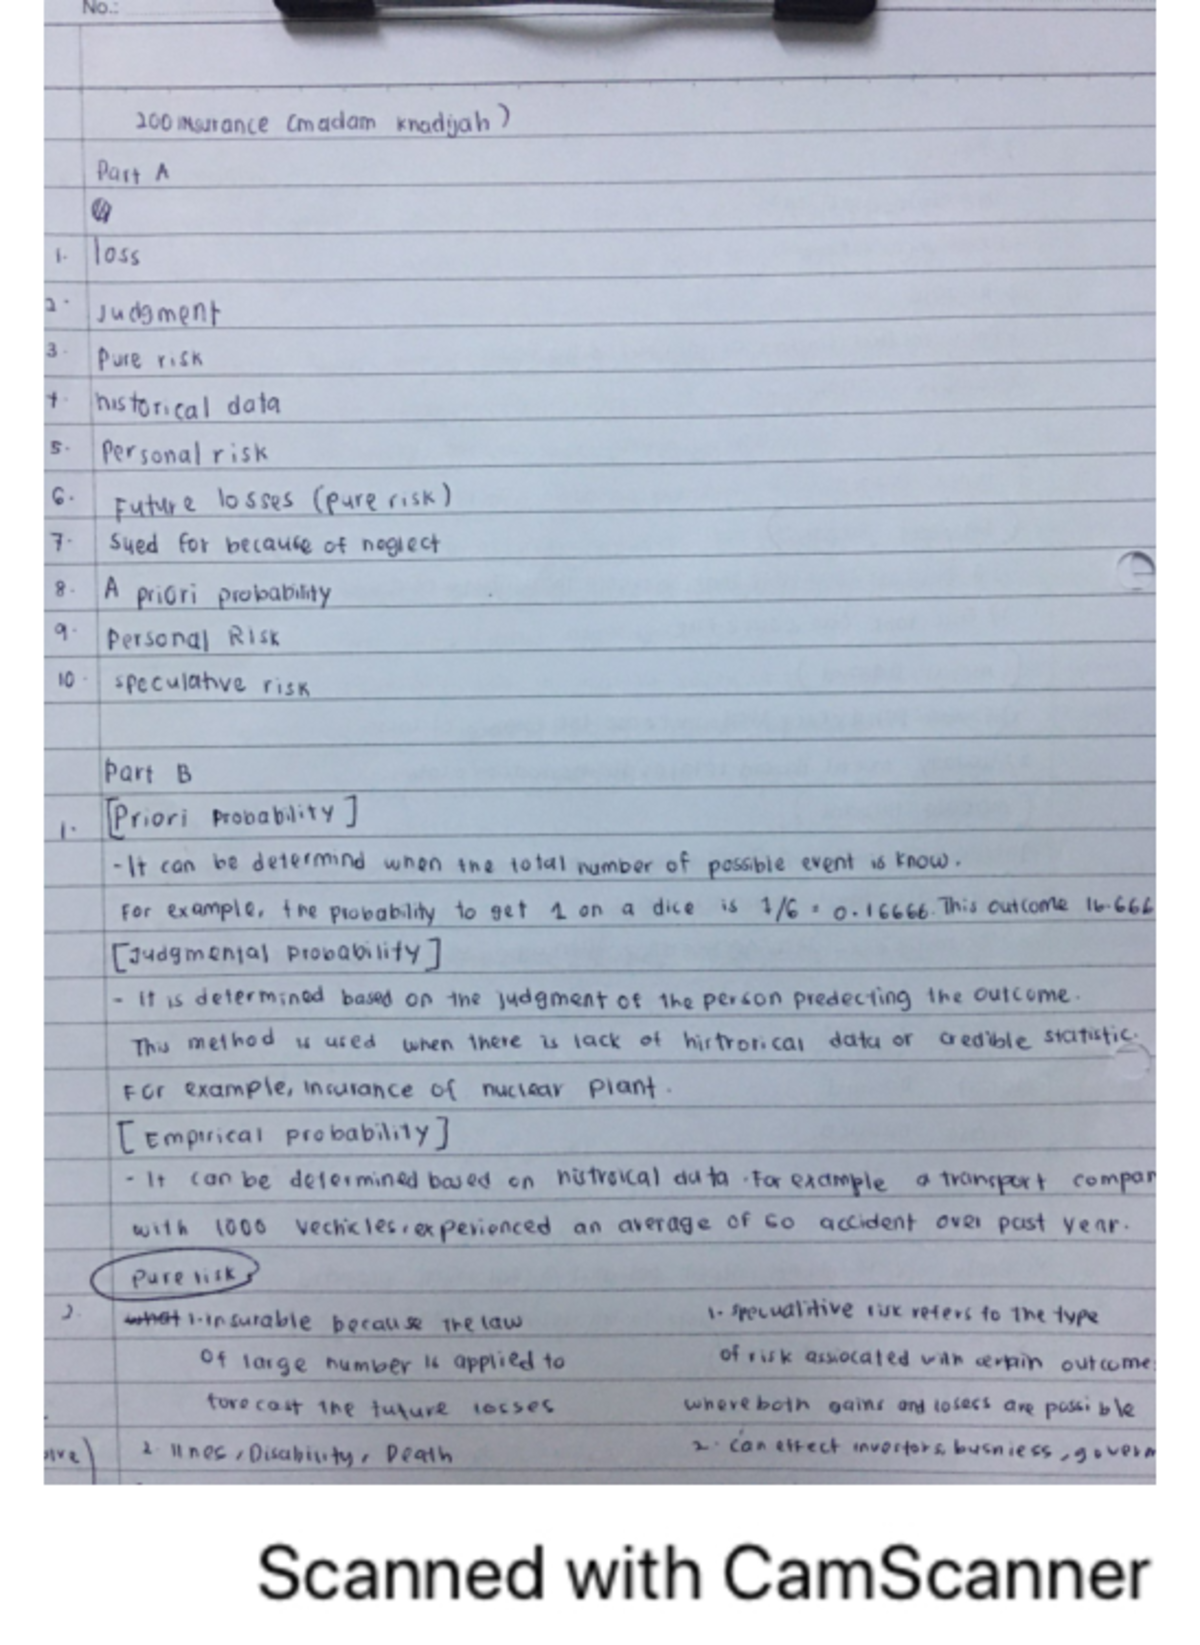 No.:
200 insurance (madam knadijah)
Part A
1. loss
2. Judgment
3. Pure risk
4. historical data
5. Personal risk
6. Future losses (pure risk)
7. Sued for because of neglect
8. A priori probability
9. Personal Risk
10. speculative risk
Part B
1. [Priori Probability]
- It can be determind when the total number of possible event is know.
For example, the probability to get 1 on a dice is 1/6 = 0.16666. This outcome 16.666
[Judgmental Probability]
- It is determined based on the judgment of the person predecting the outcome.
This method is used when there is lack of hirtrorical data or credible statistic.
For example, insurance of nuclear plant.
[Empirical probability]
- It can be determined based on histroical data. For example a transport compan
with 1000 vechicles, experienced an average of 60 accident over past year.
Pure risk
2. what 1. insurable because the law
of large number is applied to
forecast the future losses
2. llnes, Disability, Death
1. specualitive risk refers to the type
of risk assiocated with certain outcome
where both gains and losess are possible
2. can effect investors, busniess, govern